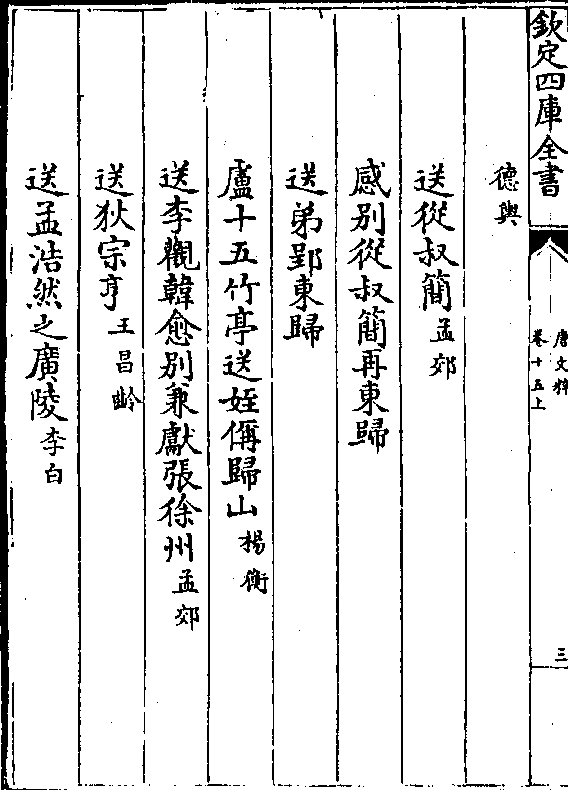 欽定四庫全書
唐文粹
卷十五上
三
德輿
送從叔簡孟郊
感别從叔簡再東歸
送弟郢東歸
盧十五竹亭送姪偁歸山楊衡
送李觀韓愈别兼獻張徐州孟郊
送狄宗亨王昌齡
送孟浩然之廣陵李白